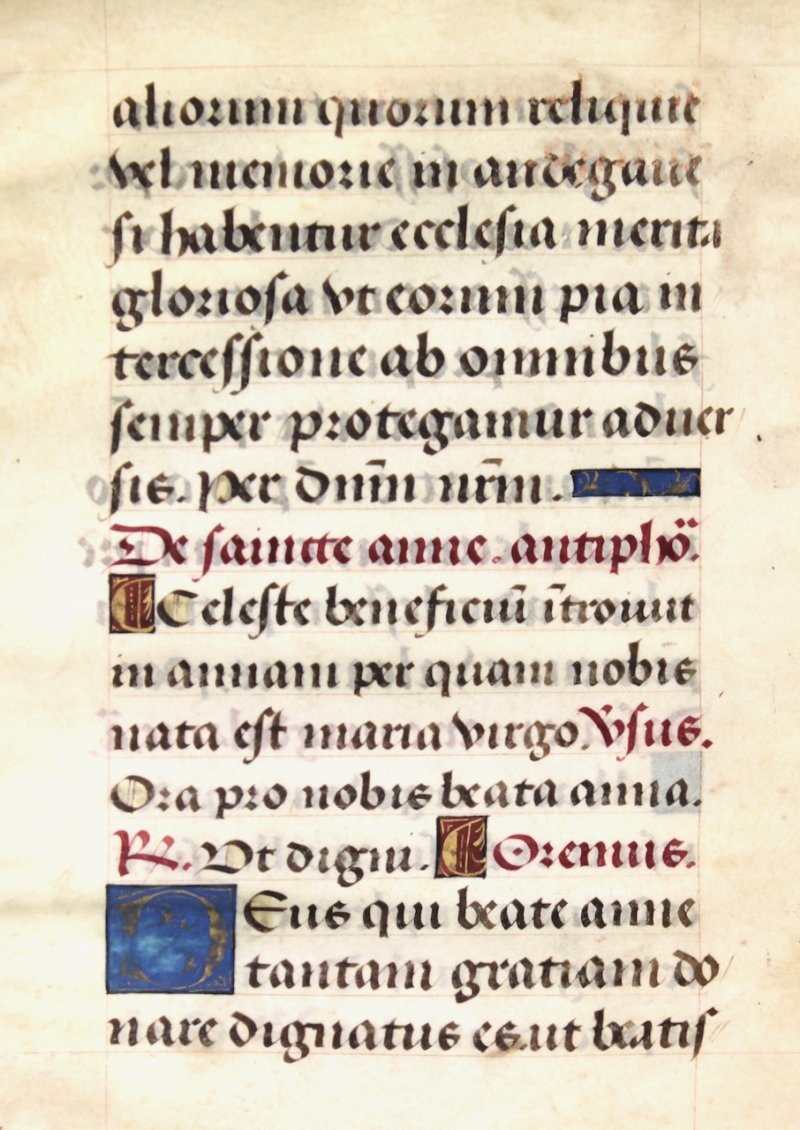 aliorum quorum reliquie
vel memorie in andegaue
si habentur ecclesia merita
gloriosa vt eorum pia in
tercessione ab omnibus
semper protegamur aduer
sis. Per dnm̄ nr̄m.
De saincte anne. antiphō.
Celeste beneficiū ītrouiit
in annam per quam nobis
nata est maria virgo. V̄sus.
Ora pro nobis beata anna.
R. Vt digni. Oremus.
Deus qui beate anne
tantam gratiam do
nare dignatus es. ut beatis